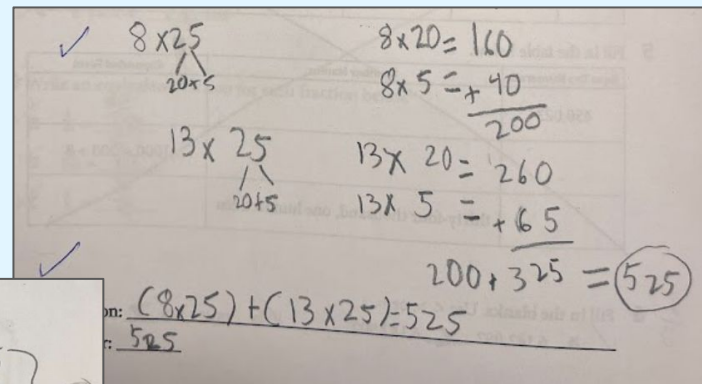 8 x 25
20 + 5
8 x 20 = 160
8 x 5 = + 40
200
13 x 25
20 + 5
13 x 20 = 260
13 x 5 = + 65
200 + 325 = 525
on: (8x25) + (13 x 25) = 525
: 525